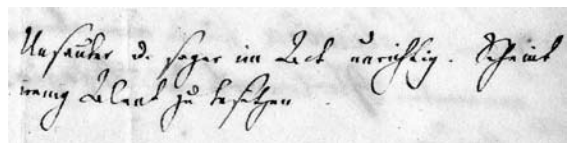 Unsauber d. sogar im Takt unrichtig. Scheint
wenig Talent zu besitzen